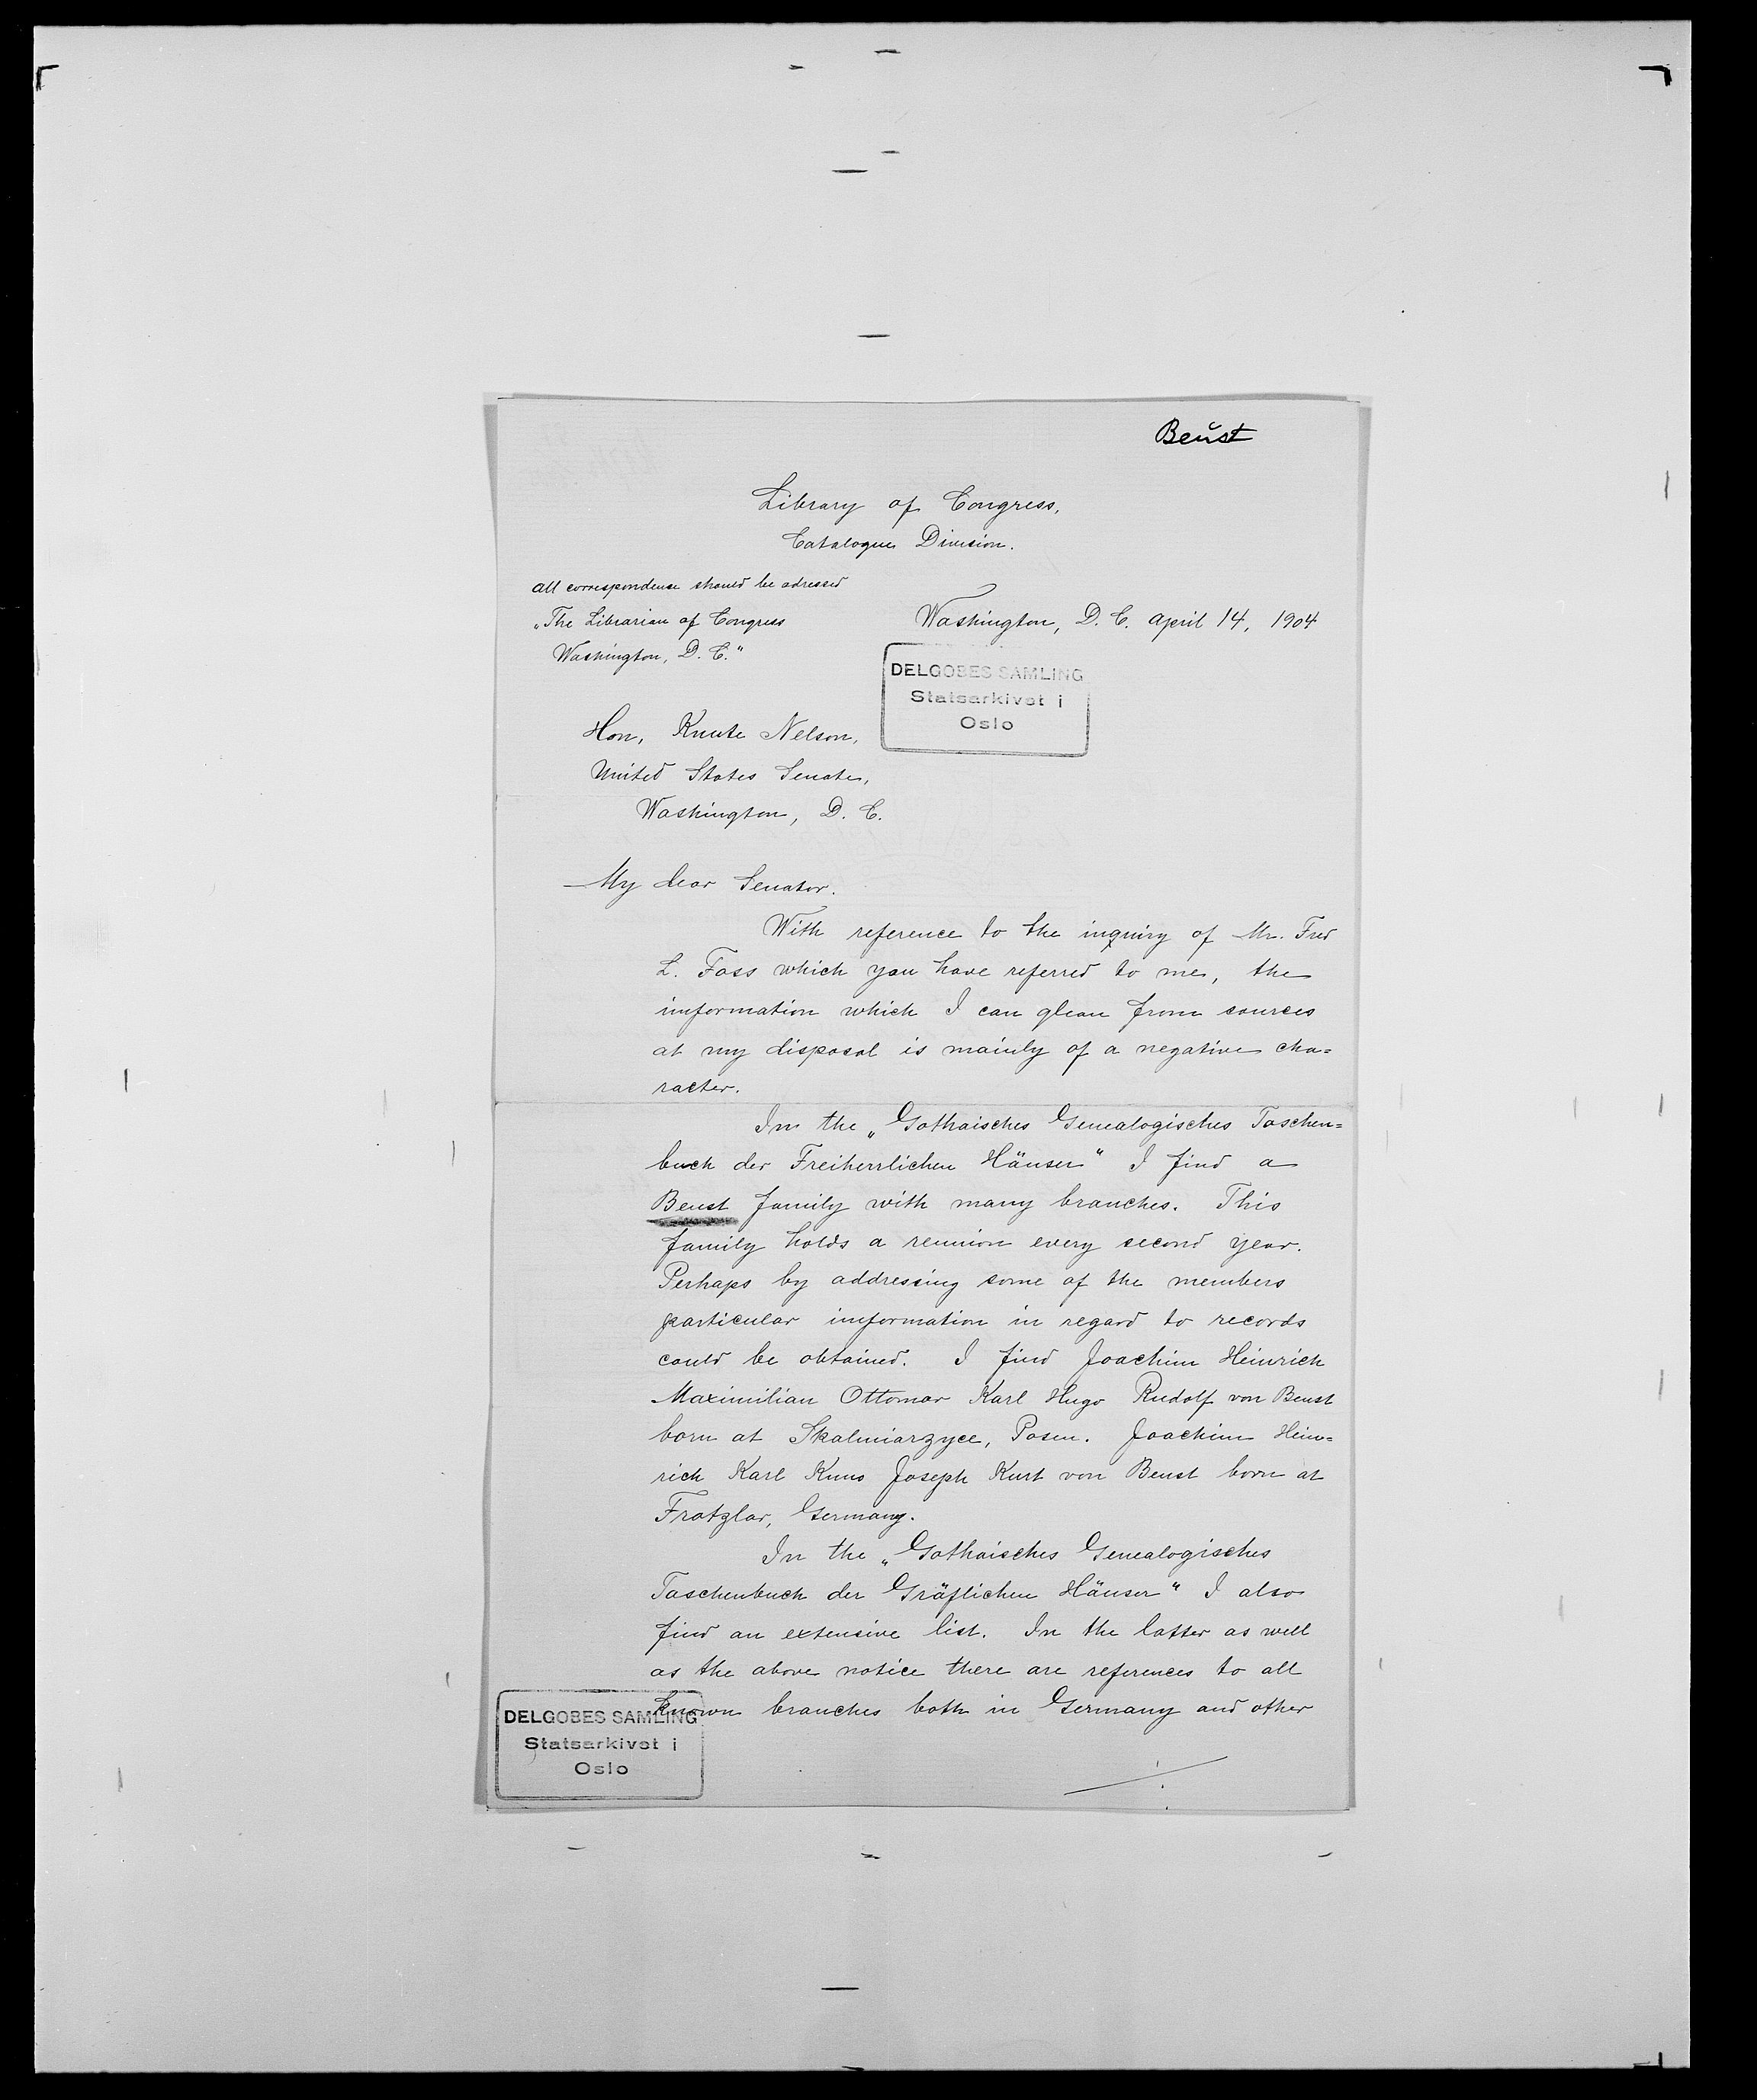 Beŭst
Library of Congress,
Catalogue Division.
All correspondense should be adressed
„The Librarian of Congress
Washington, D. C.“
Washington, D. C. April 14, 1904
DELGOBES SAMLING
Statsarkivet i
Oslo
Hon, Knute Nelson,
United States Senate,
Washington, D. C.
My dear Senator.
With reference to the inquiry of Mr. Fred
L. Foss which you have referred to me, the
imformation which I can glean from sources
at my disposal is mainly of a negative cha=
racter.
In the „Gothaisches Genealogisches Taschen=
buch der Freiherrlichen Häuser“ I find a
Beust family with many branches. This
family holds a reunion every second year.
Perhaps by addressing some of the members
particular imformation in regard to records
could be obtained. I find Joachim Heinrich
Maximilian Ottomar Karl Hugo Rudolf von Beust
born at Skalmiarzyce, Posen. Joachim Hein=
rich Karl Kuno Joseph Kurt von Beust born at
Fratzlar, Germany.
In the „Gothaisches Genealogisches
Taschenbuch der Gräflichen Häuser“ I also
find an extensive list. In the latter as well
as the above notice there are references to all
known branches both in Germany and other
DELGOBES SAMLING
Statsarkivet i
Oslo